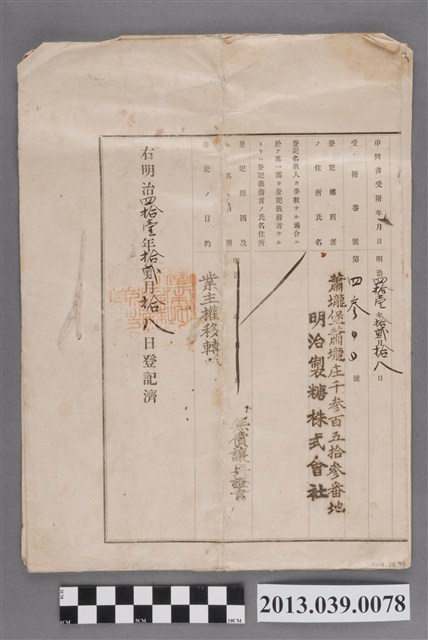 申請書受附年月日 明治四拾壹年拾貳月拾八日
受附番號 第四參〇〇號
登記權利者ノ住所氏名 蕭壠堡蕭壠庄千參百五拾參番地
明治製糖株式會社
登記名義人カ多數ナル場合ニ
於テ其一部カ登記義務者ナル
トキハ登記義務者ノ氏名住所
登記原因及
其日附 明治年月日
登記ノ目的 業主權移轉
右明治四拾壹年拾貳月拾八日登記濟
2013.039.0078